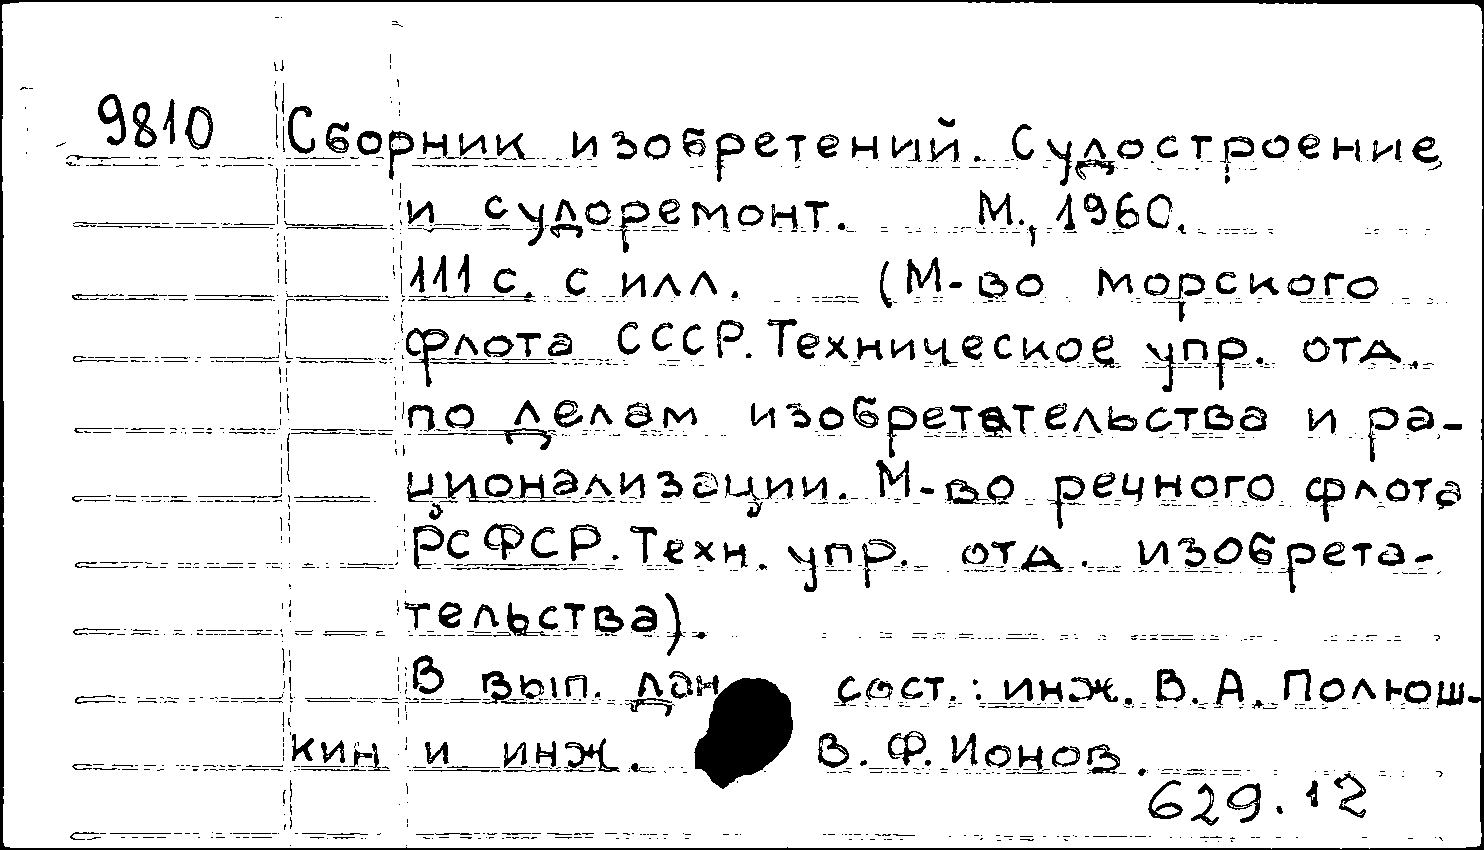 9810 Сборник изобретений. Судостроение
и судоремонт. М., 1960.
111 с. с илл. (М-во морского
флота СССР. Техническое упр. отд.
по делам изобретательства и ра-
ционализации. М-во речного флота
РСФСР. Техн. упр. отд. изобрета-
тельства).
В вып. дан сост.: инж. В. А. Полюш-
кин и инж. В. Ф. Ионов.
629.12